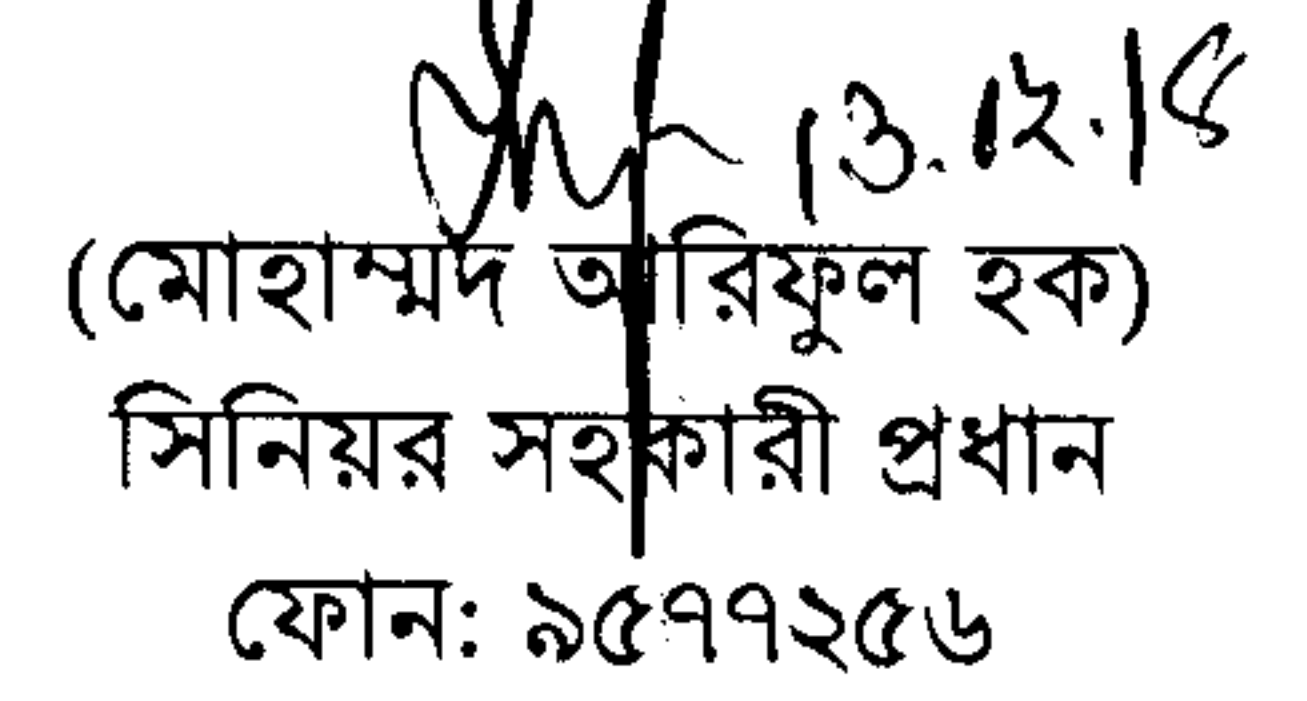 13.12.18
(মোহাম্মদ আরিফুল হক)
সিনিয়র সহকারী প্রধান
ফোন: ৯৫৭৭২৫৬